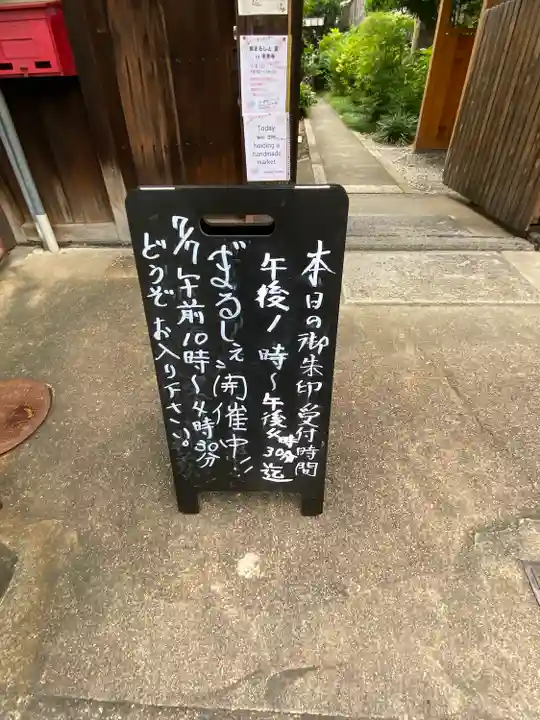 Today
we are
holding a
handmade
market
本日の御朱印受付時間
午後1時〜午後4時30分迄
ずまるしぇ開催中!!
7/7 午前10時〜4時30分
どうぞお入り下さい。